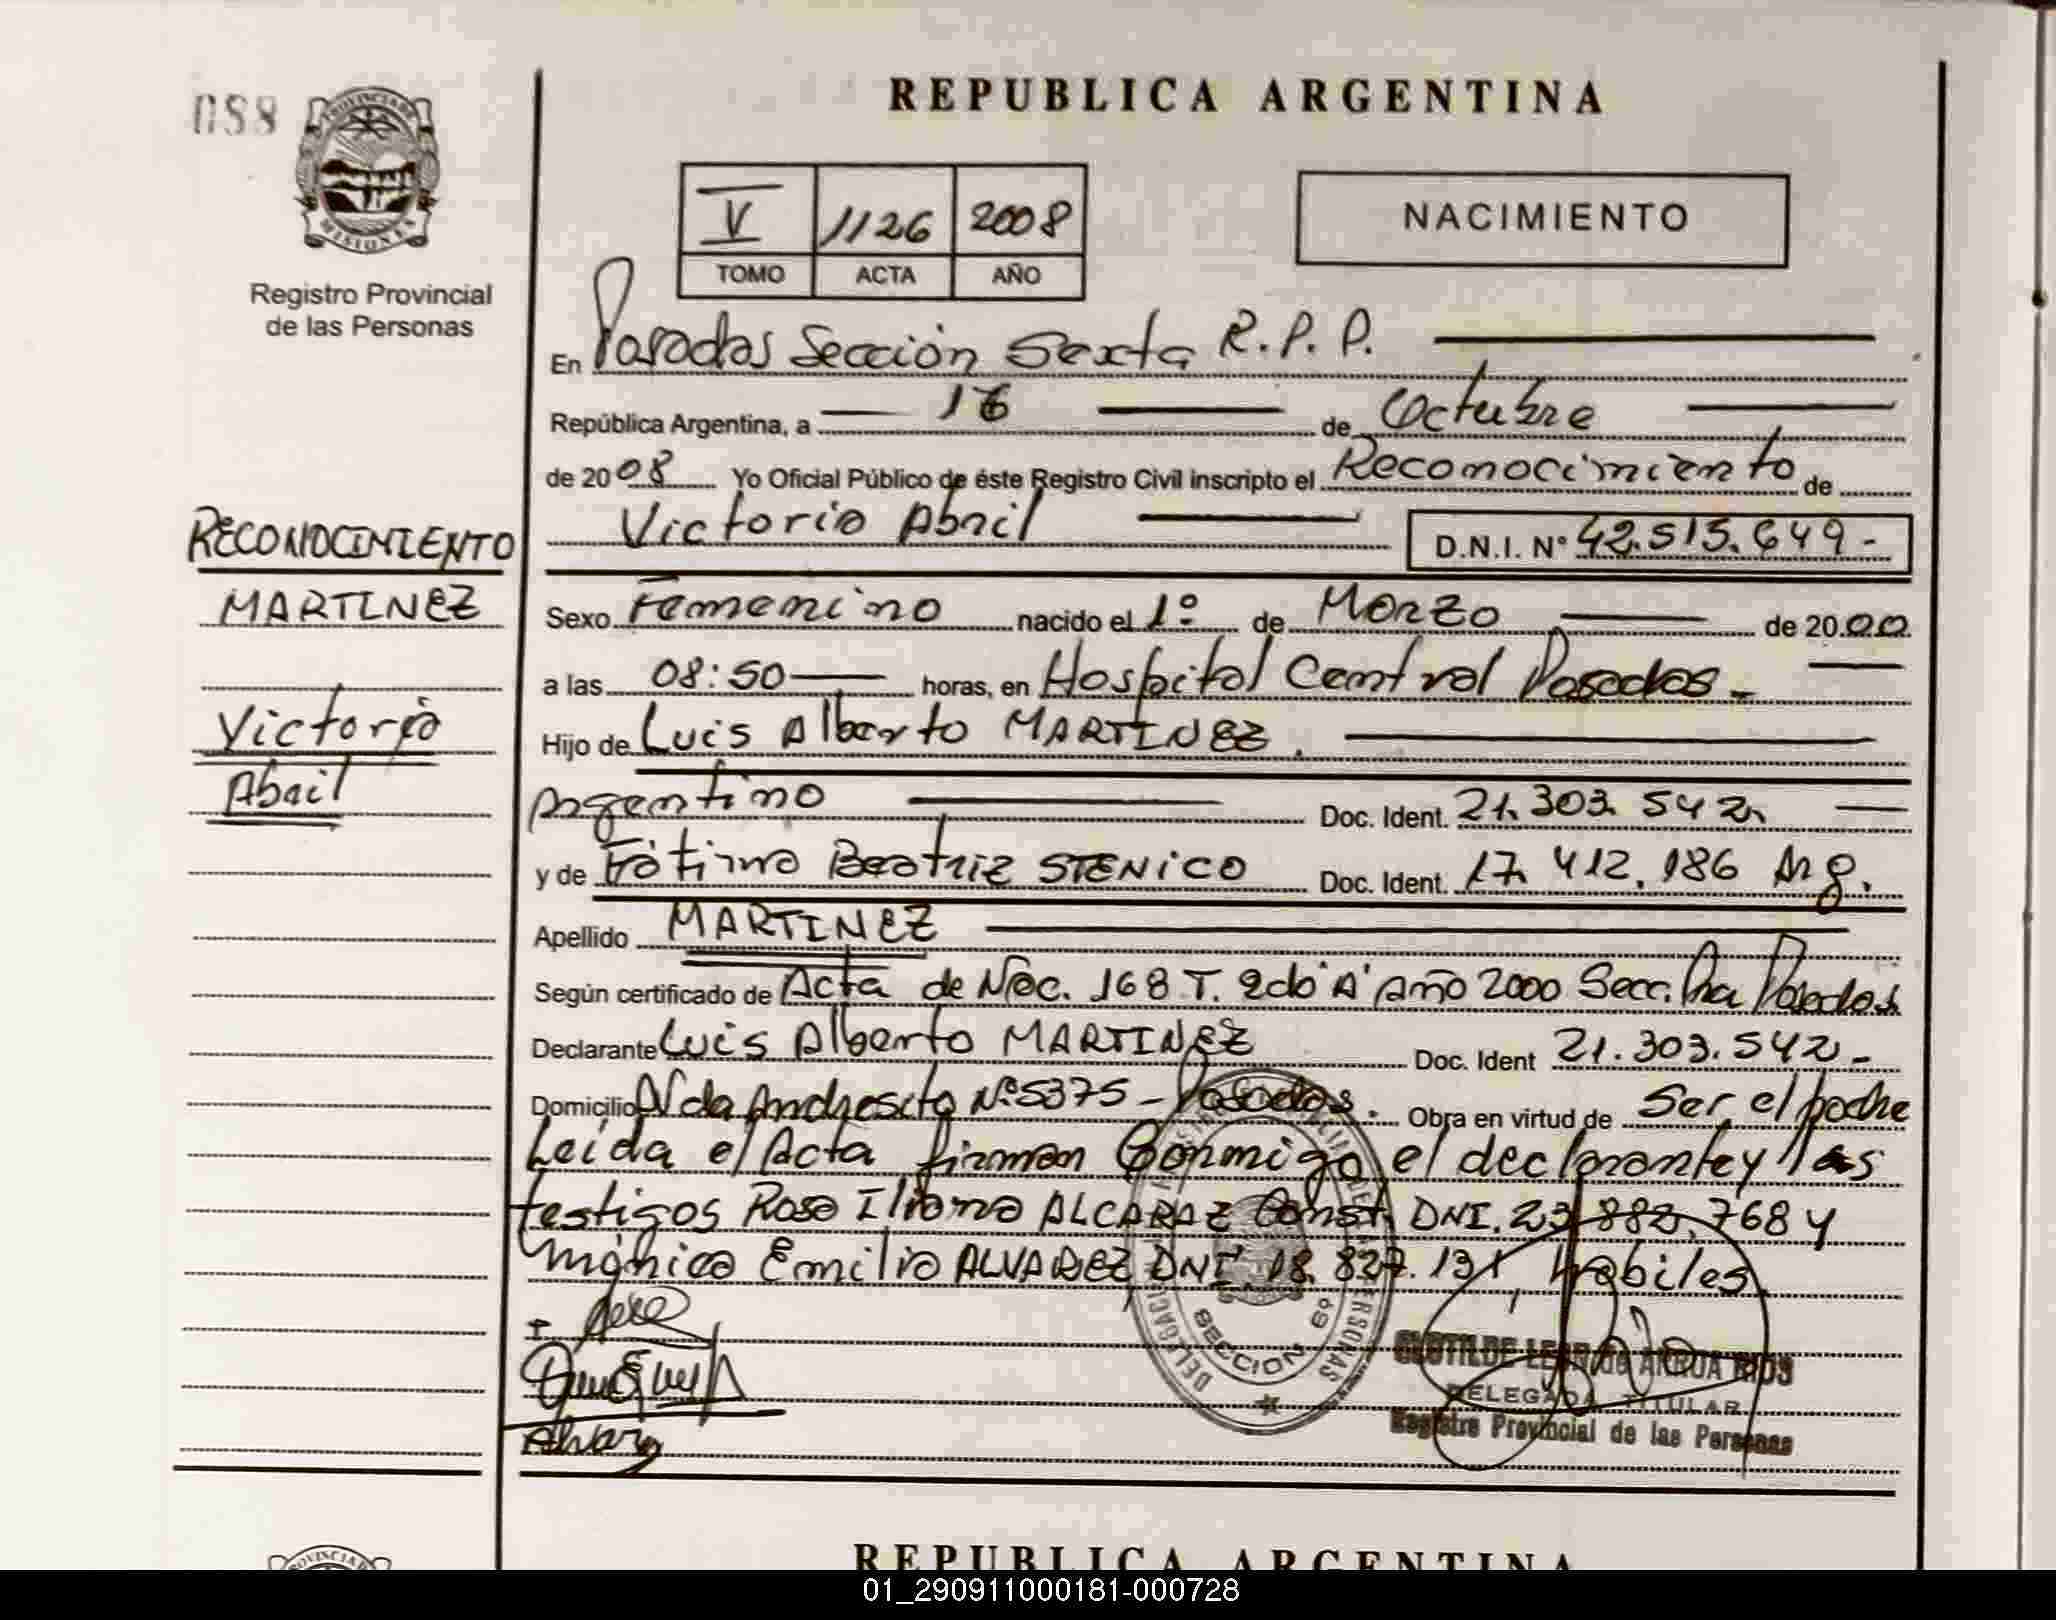 088
PROVINCIA DE
MISIONES
Registro Provincial
de las Personas
REPUBLICA ARGENTINA
V 1126 2008
TOMO ACTA AÑO
NACIMIENTO
En Posadas Sección Sexta R.P.P.
República Argentina, a 16 de Octubre
de 2008 Yo Oficial Público de éste Registro Civil inscripto el Reconocimiento de
Victoria Abril D.N.I. Nº 42.515.649-
RECONOCIMIENTO
MARTINEZ
Victoria
Abril
Sexo Femenino nacido el 1º de Marzo de 2000
a las 08:50 horas, en Hospital Central Posadas-
Hijo de Luis Alberto MARTINEZ.
Argentino Doc. Ident. 21.303.542
y de Fátima Beatriz STENICO Doc. Ident. 17.412.186 Arg.
Apellido MARTINEZ
Según certificado de Acta de Nac. 168 T. 2do "A" año 2000 Secc. 1ra Posadas
Declarante Luis Alberto MARTINEZ Doc. Ident 21.303.542-
Domicilio Avda Andresito Nº 5375 - Posadas. Obra en virtud de Ser el padre
Leída el Acta firman Conmigo el declarante y las
testigos Rosa Iliana ALCARAZ Const. DNI. 23.882.768 y
Mónica Emilia ALVAREZ DNI 18.827.131, hábiles
SECCION 6º
CLOTILDE de ARRUA RIOS
DELEGADA TITULAR
Registro Provincial de las Personas
Alvarez
REPUBLICA ARGENTINA
01_290911000181-000728